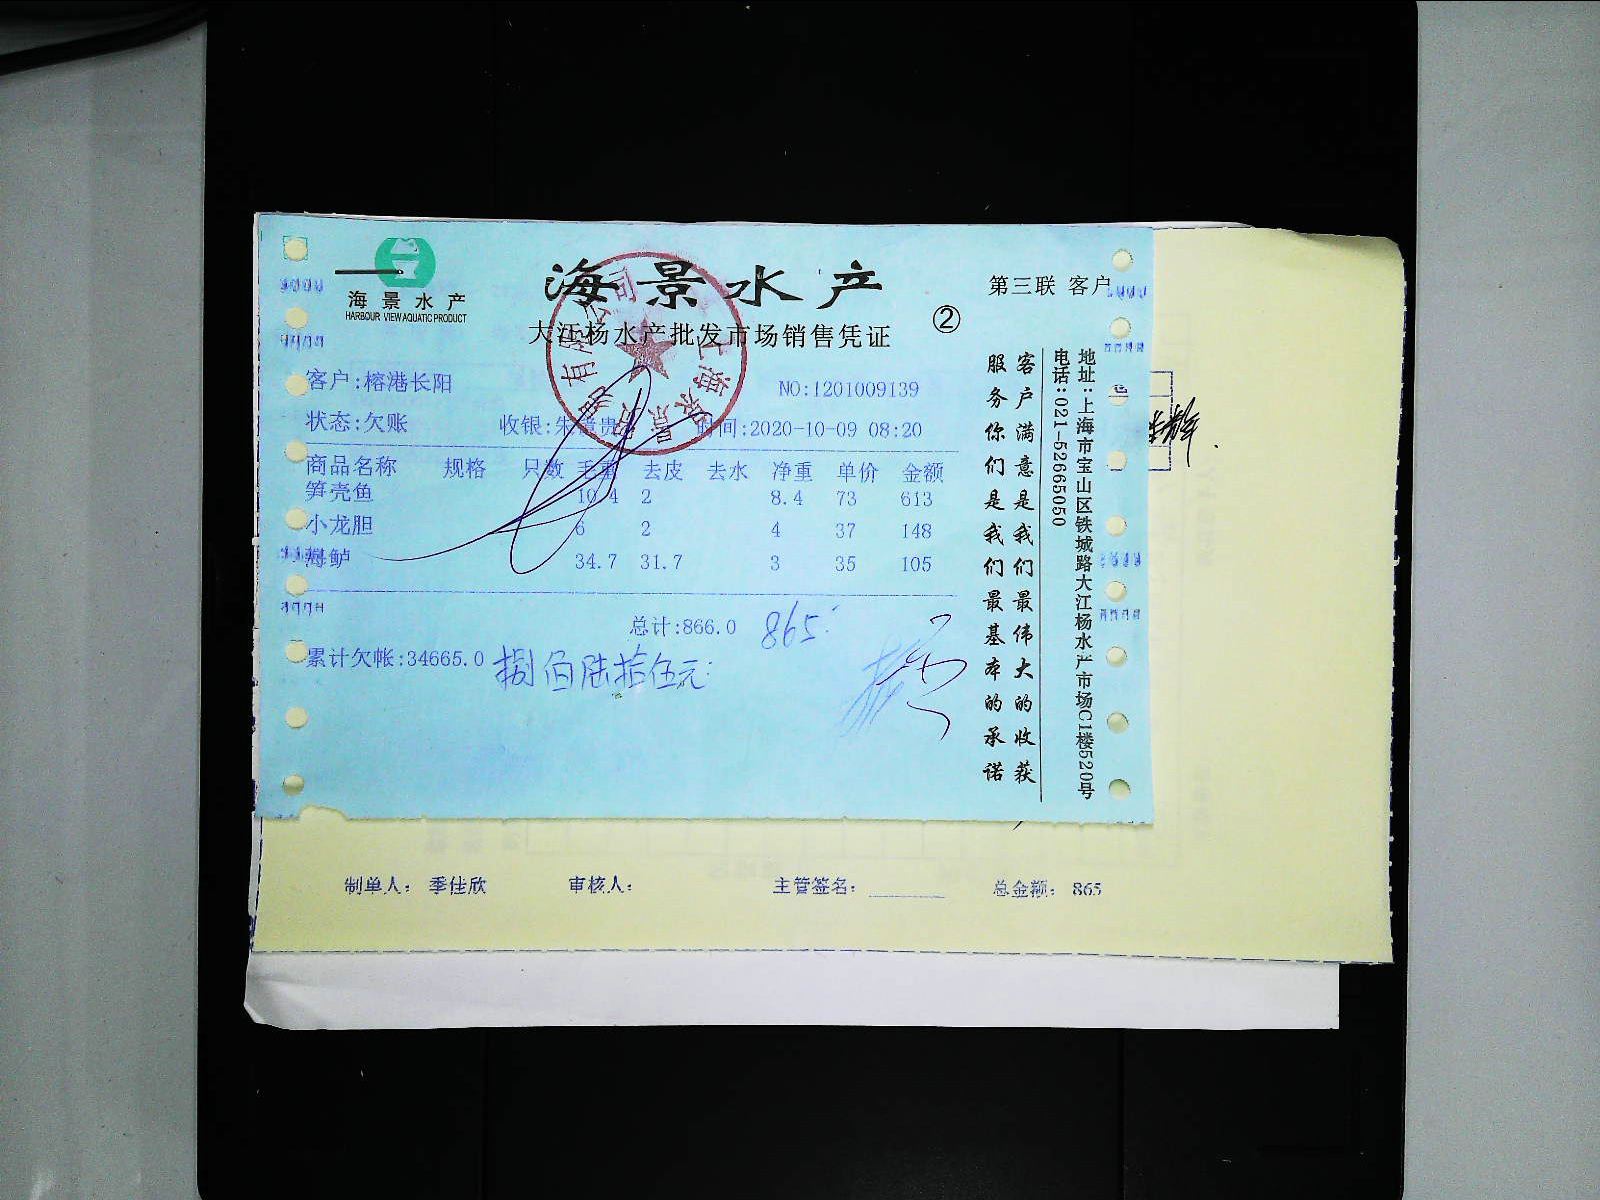 海景水产
HARBOUR VIEW AQUATIC PRODUCT
海景水产
大江杨水产批发市场销售凭证
②
第三联 客户
客户:榕港长阳
NO:1201009139
状态:欠账
收银:朱 贵
时间:2020-10-09 08:20
商品名称 规格 只数 毛重 去皮 去水 净重 单价 金额
笋壳鱼 10.4 2 8.4 73 613
小龙胆 6 2 4 37 148
海鲈 34.7 31.7 3 35 105
总计:866.0 865
累计欠帐:34665.0 捌佰陆拾伍元
客户满意是我们最伟大的收获
服务你们是我们最基本的承诺
地址:上海市宝山区铁城路大江杨水产市场C1楼520号
电话:021-52665050
制单人: 季佳欣 审核人: 主管签名: 总金额: 865